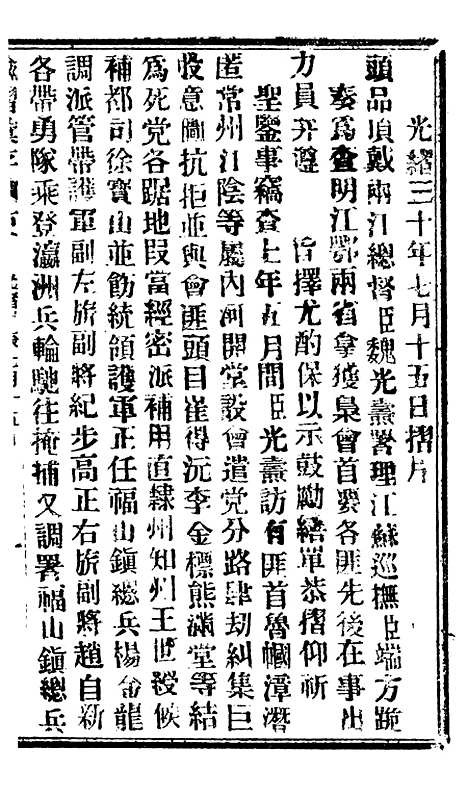 光緒三十年七月十五日摺片
頭品頂戴兩江總督臣魏光燾署理江蘇巡撫臣端方跪
奏爲查明江鄂兩省拿獲梟會首要各匪先後在事出
力員弁遵　旨擇尤酌保以示鼓勵繕單恭摺仰祈
聖鑒事竊查上年五月間臣光燾訪有匪首魯幗漳潛
匿常州江陰等屬內河開堂設會遣党分路肆劫糾集巨
股意圖抗拒並與會匪頭目崔得沅李金標熊滿堂等結
爲死党各踞地段當經密派補用直隸州知州王世綬候
補都司徐寳山並飭統領護軍正任福山鎭總兵楊金龍
調派管帶護軍副左旂副將紀步高正右旂副將趙自新
各帶勇隊乘登瀛洲兵輪馳往掩捕又調署福山鎭總兵